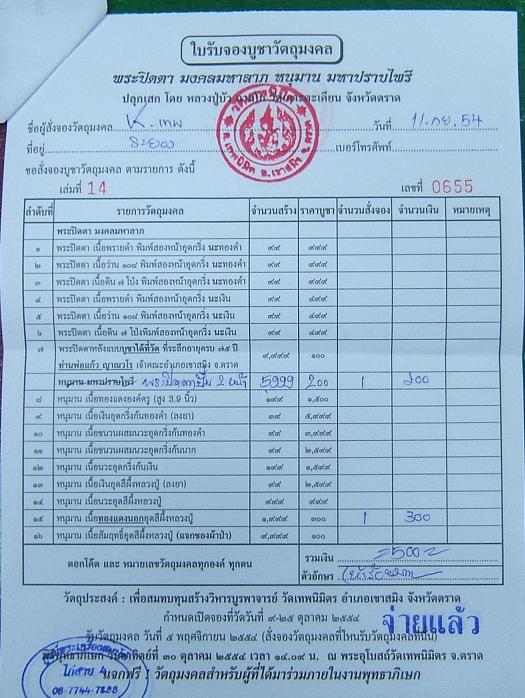 ใบรับจองบูชาวัตถุมงคล
พระปิดตา มงคลมหาลาภ หนุมาน มหาปราบไพรี
ปลุกเสก โดย หลวงปู่บัว จังหวัดตราด
ชื่อผู้สั่งจองวัตถุมงคล K. เทพ วันที่ 11.กย.54
ที่อยู่ ระยอง เบอร์โทรศัพท์
ขอสั่งจองบูชาวัตถุมงคล ตามรายการ ดังนี้
เล่มที่ 14 เลขที่ 0655
ลำดับที่ รายการวัตถุมงคล จำนวนสร้าง ราคาบูชา จำนวนสั่งจอง จำนวนเงิน หมายเหตุ
พระปิดตา มงคลมหาลาภ
๑ พระปิดตา เนื้อพรายดำ พิมพ์สองหน้าอุดกริ่ง นะทองคำ ๙๙ ๙๙๙
๒ พระปิดตา เนื้อว่าน ๑๐๘ พิมพ์สองหน้าอุดกริ่ง นะทองคำ ๙๙ ๙๙๙
๓ พระปิดตา เนื้อดิน ๗ โป่ง พิมพ์สองหน้าอุดกริ่ง นะทองคำ ๙๙ ๙๙๙
๔ พระปิดตา เนื้อพรายดำ พิมพ์สองหน้าอุดกริ่ง นะเงิน ๙๙ ๔๙๙
๕ พระปิดตา เนื้อว่าน ๑๐๘ พิมพ์สองหน้าอุดกริ่ง นะเงิน ๙๙ ๔๙๙
๖ พระปิดตา เนื้อดิน ๗ โป่งพิมพ์สองหน้าอุดกริ่ง นะเงิน ๙๙ ๔๙๙
๗ พระปิดตาหลังแบบบูชาได้ที่วัด ที่ระลึกอายุครบ ๗๕ ปี
ท่านพ่อแก้ว ญาณวโร เจ้าคณะอำเภอเขาสมิง จ.ตราด ๙,๙๙๙ ๑๐๐
หนุมาน มหาปราบไพรี 2 หน้า 5999 200 1 200
๘ หนุมาน เนื้อทองแดงองค์ครู (สูง 3.9 นิ้ว) ๑๙๙ ๑,๕๐๐
๙ หนุมาน เนื้อเงินอุดกริ่งก้นทองคำ (ลงยา) ๓๙ ๕,๙๙๙
๑๐ หนุมาน เนื้อชนวนผสมนวะอุดกริ่งก้นทองคำ ๙๙ ๓,๙๙๙
๑๑ หนุมาน เนื้อชนวนผสมนวะอุดกริ่งก้นนาก ๙๙ ๒,๕๙๙
๑๒ หนุมาน เนื้อนวะอุดกริ่งก้นเงิน ๑๙๙ ๑,๕๙๙
๑๓ หนุมาน เนื้อเงินอุดสีผึ้งหลวงปู่ (ลงยา) ๙๙ ๒,๕๙๙
๑๔ หนุมาน เนื้อนวะอุดสีผึ้งหลวงปู่ ๙๙๙ ๙๙๙
๑๕ หนุมาน เนื้อทองแดงนอกอุดสีผึ้งหลวงปู่ ๑,๙๙๙ ๓๐๐ 1 300
๑๖ หนุมาน เนื้อสัมฤทธิ์อุดสีผึ้งหลวงปู่ (แจกซองผ้าป่า) ๙,๙๙๙ ๑๐๐
ตอกโค๊ต และ หมายเลขวัตถุมงคลทุกองค์ ทุกตน รวมเงิน 500
ตัวอักษร
วัตถุประสงค์ : เพื่อสมทบทุนสร้างวิหารบูรพาจารย์ วัดเทพนิมิตร อำเภอเขาสมิง จังหวัดตราด
กำหนดเปิดจองที่วัดวันที่ ๙-๒๕ ตุลาคม ๒๕๕๔ จ่ายแล้ว
รับวัตถุมงคล วันที่ ๕ พฤศจิกายน ๒๕๕๔ (สั่งจองวัตถุมงคลที่ไหนรับวัตถุมงคลที่นั่น)
๓๐ ตุลาคม ๒๕๕๔ เวลา ๑๔.๐๙ น. ณ พระอุโบสถวัดเทพนิมิตร จ.ตราด
แจกฟรี : วัตถุมงคลสำหรับผู้ที่ได้มาร่วมภายในงานพุทธาภิเษก
ไผ่สาย 4